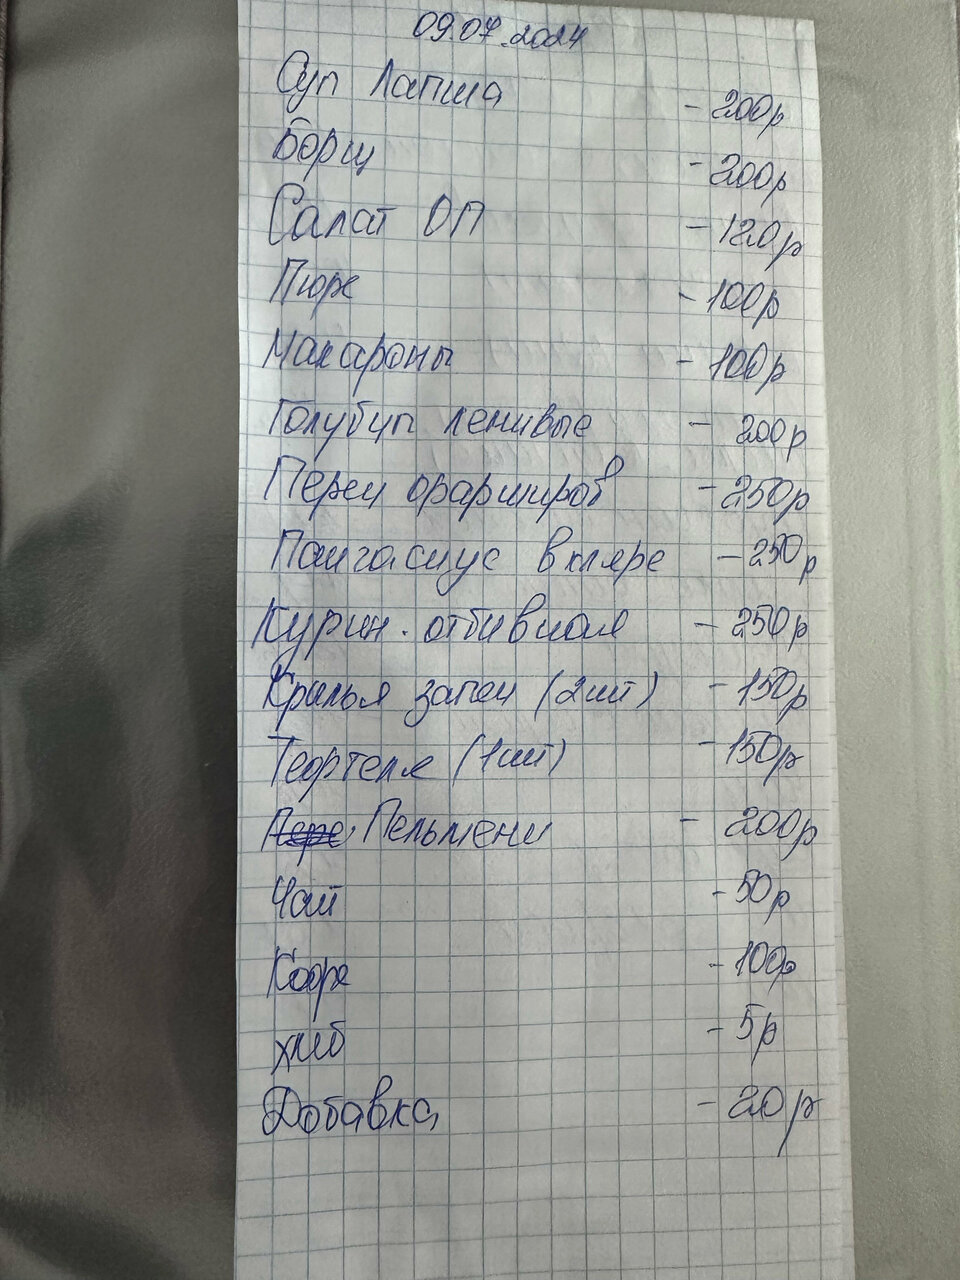 09.07.2024
Суп Лапша - 200р
Борщ - 200р
Салат ОП - 120р
Пюре - 100р
Макароны - 100р
Голубцы ленивые - 200р
Перец фарширов - 250р
Пангасиус в кляре - 250р
Курин. отбивная - 250р
Крылья запеч (2шт) - 150р
Тефтеля (1шт) - 150р
Пельмени - 200р
Чай - 50р
Кофе - 100р
хлеб - 5р
Добавка - 20р